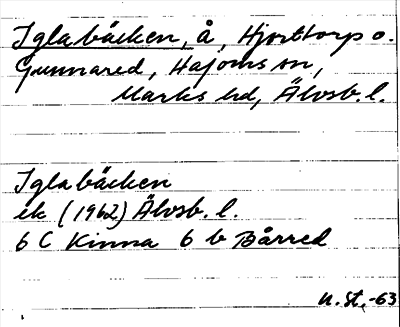 Iglabäcken, å, Hjorttorp o.
Gunnared, Hajoms sn,
Marks hd, Älvsb. l.
Iglabäcken
ek (1962) Älvsb. l.
6 C Kinna 6 b Bårred
U. St. -63